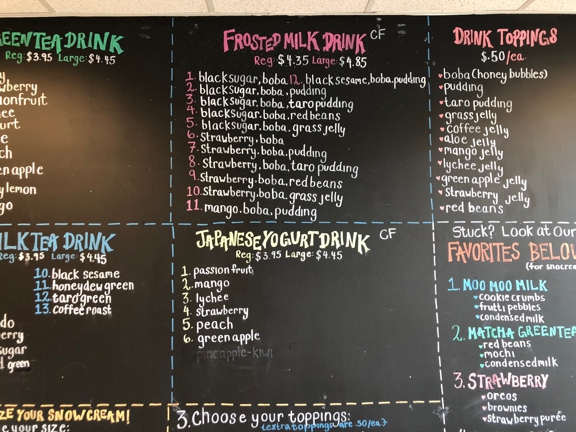 EEN TEA DRINK
Reg: $3.95 Large: $4.45
onfruit
en apple
lemon
FROSTED MILK DRINK CF
Reg: $4.35 Large: $4.85
1. blacksugar, boba 12. black sesame, boba, pudding
2. blacksugar, boba, pudding
3. blacksugar, boba, taro pudding
4. blacksugar, boba, red beans
5. blacksugar, boba, grass jelly
6. strawberry, boba
7. strawberry, boba, pudding
8. strawberry, boba, taro pudding
9. strawberry, boba, red beans
10. strawberry, boba, grass jelly
11. mango, boba, pudding
DRINK TOPPINGS
$.50/ea.
boba (honey bubbles)
pudding
taro pudding
grass jelly
coffee jelly
aloe jelly
mango jelly
lychee jelly
green apple jelly
strawberry jelly
red beans
ILK TEA DRINK
Reg: $3.95 Large: $4.45
10. black sesame
11. honeydew green
12. taro green
13. coffee roast
do
erry
sugar
green
JAPANESE YOGURT DRINK CF
Reg: $3.95 Large: $4.45
1. passion fruit
2. mango
3. lychee
4. strawberry
5. peach
6. green apple
pineapple-kiwi
Stuck? Look at Our
FAVORITES BELOW
(for snocrea
1. MOO MOO MILK
cookie crumbs
fruity pebbles
condensed milk
2. MATCHA GREENTEA
red beans
mochi
condensed milk
3. STRAWBERRY
oreos
brownies
strawberry purée
ZE YOUR SNOWCREAM!
e your size:
3. Choose your toppings:
*extra toppings are .50/ea